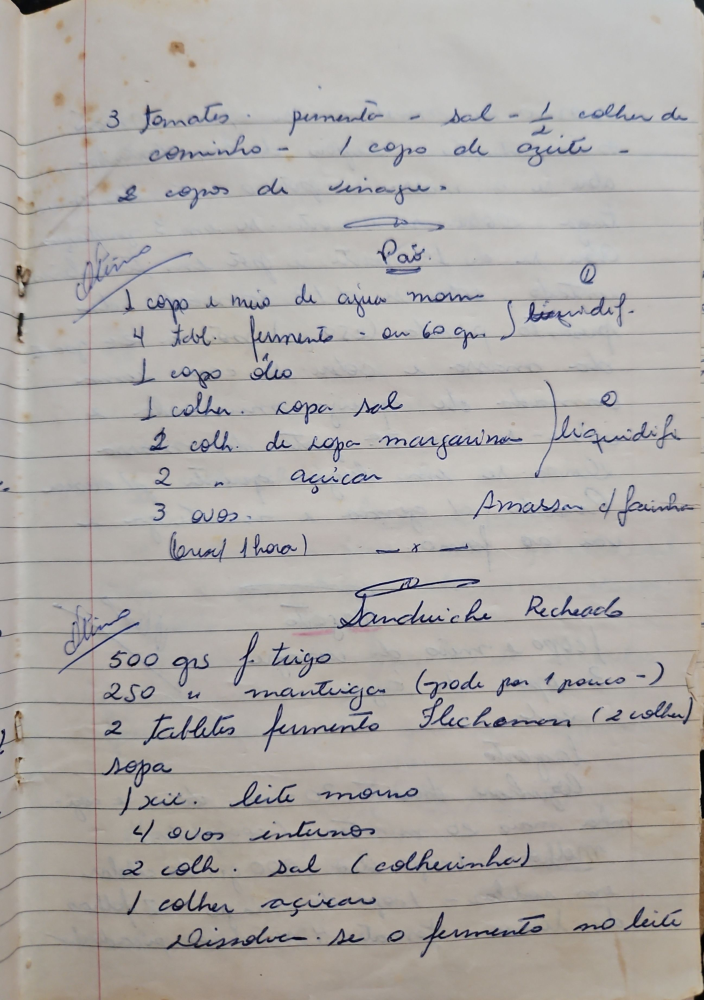 3 tomates. pimenta - sal - 1/2 colher de
cominho - 1 copo de azeite -
2 copos de vinagre.
Pão.
Ótimo
1 copo e meio de agua morna
4 tabl. fermento - ou 60 grs. } liquidif. ①
1 copo óleo
1 colher. sopa sal
2 colh. de sopa margarina ) liquidifi ②
2 " açúcar
3 ovos. Amassar c/ farinha
(cresc/ 1 hora) — x —
Ótimo
Sanduiche Recheado
500 grs f. trigo
250 " manteiga (pode por 1 pouco -)
2 tabletes fermento Fleischman (2 colher)
sopa
1 xic. leite morno
4 ovos inteiros
2 colh. sal (colherinha)
1 colher açúcar
Dissolve-se o fermento no leite